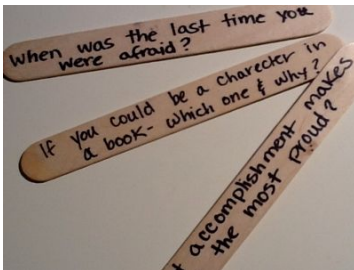 when was the last time you
were afraid?
If you could be a charecter in
a book- which one & why?
accomplishment makes
the most proud?